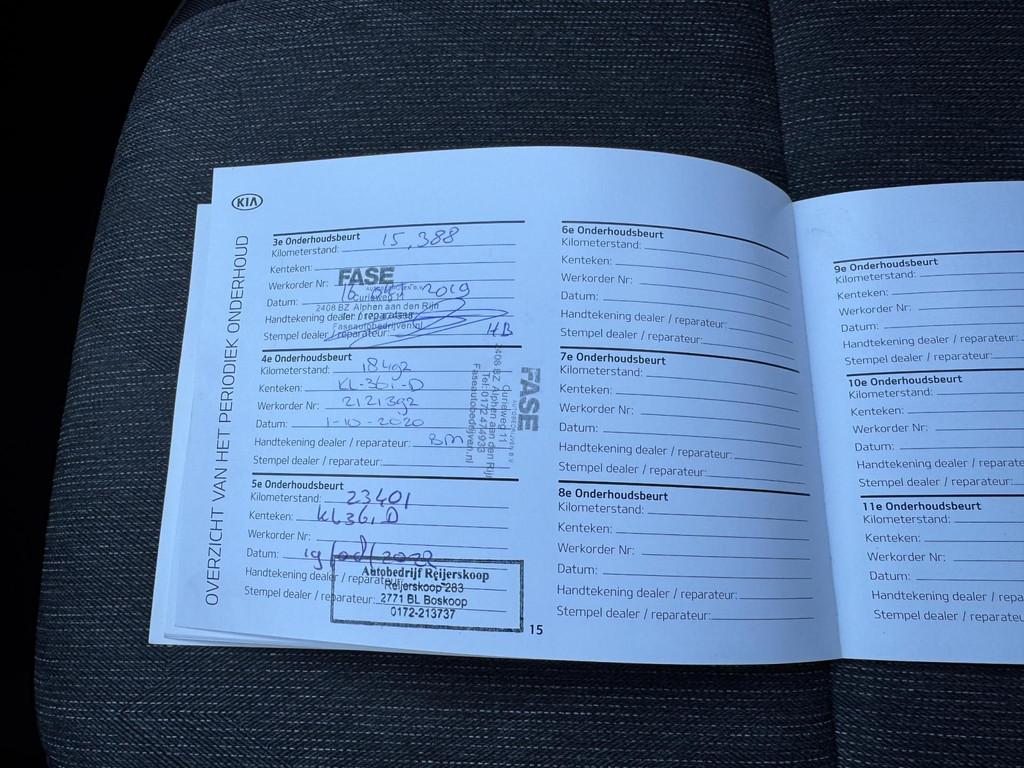 KIA
OVERZICHT VAN HET PERIODIEK ONDERHOUD
3e Onderhoudsbeurt
Kilometerstand: 15,388
Kenteken:
Werkorder Nr:
Datum: 2019
Handtekening dealer / reparateur:
Stempel dealer / reparateur: HB
FASE
Curieweg 11
2408 BZ Alphen aan den Rijn
Faseautobedrijven.nl
4e Onderhoudsbeurt
Kilometerstand: 18492
Kenteken: KL-361-D
Werkorder Nr: 2121392
Datum: 1-10-2020
Handtekening dealer / reparateur: BM
Stempel dealer / reparateur:
FASE
AUTOBEDRIJVEN B.V.
Curieweg 11
2408 BZ Alphen aan den Rijn
Tel: 0172 474933
Faseautobedrijven.nl
5e Onderhoudsbeurt
Kilometerstand: 23401
Kenteken: KL361D
Werkorder Nr:
Datum: 2022
Handtekening dealer / reparateur:
Stempel dealer / reparateur:
Autobedrijf Reijerskoop
Reijerskoop 283
2771 BL Boskoop
0172-213737
15
6e Onderhoudsbeurt
Kilometerstand:
Kenteken:
Werkorder Nr:
Datum:
Handtekening dealer / reparateur:
Stempel dealer / reparateur:
7e Onderhoudsbeurt
Kilometerstand:
Kenteken:
Werkorder Nr:
Datum:
Handtekening dealer / reparateur:
Stempel dealer / reparateur:
8e Onderhoudsbeurt
Kilometerstand:
Kenteken:
Werkorder Nr:
Datum:
Handtekening dealer / reparateur:
Stempel dealer / reparateur:
9e Onderhoudsbeurt
Kilometerstand:
Kenteken:
Werkorder Nr:
Datum:
Handtekening dealer / reparateur:
Stempel dealer / reparateur:
10e Onderhoudsbeurt
Kilometerstand:
Kenteken:
Werkorder Nr:
Datum:
Handtekening dealer / reparate
Stempel dealer / reparateur
11e Onderhoudsbeurt
Kilometerstand:
Kenteken:
Werkorder Nr:
Datum:
Handtekening dealer / repa
Stempel dealer / reparateu